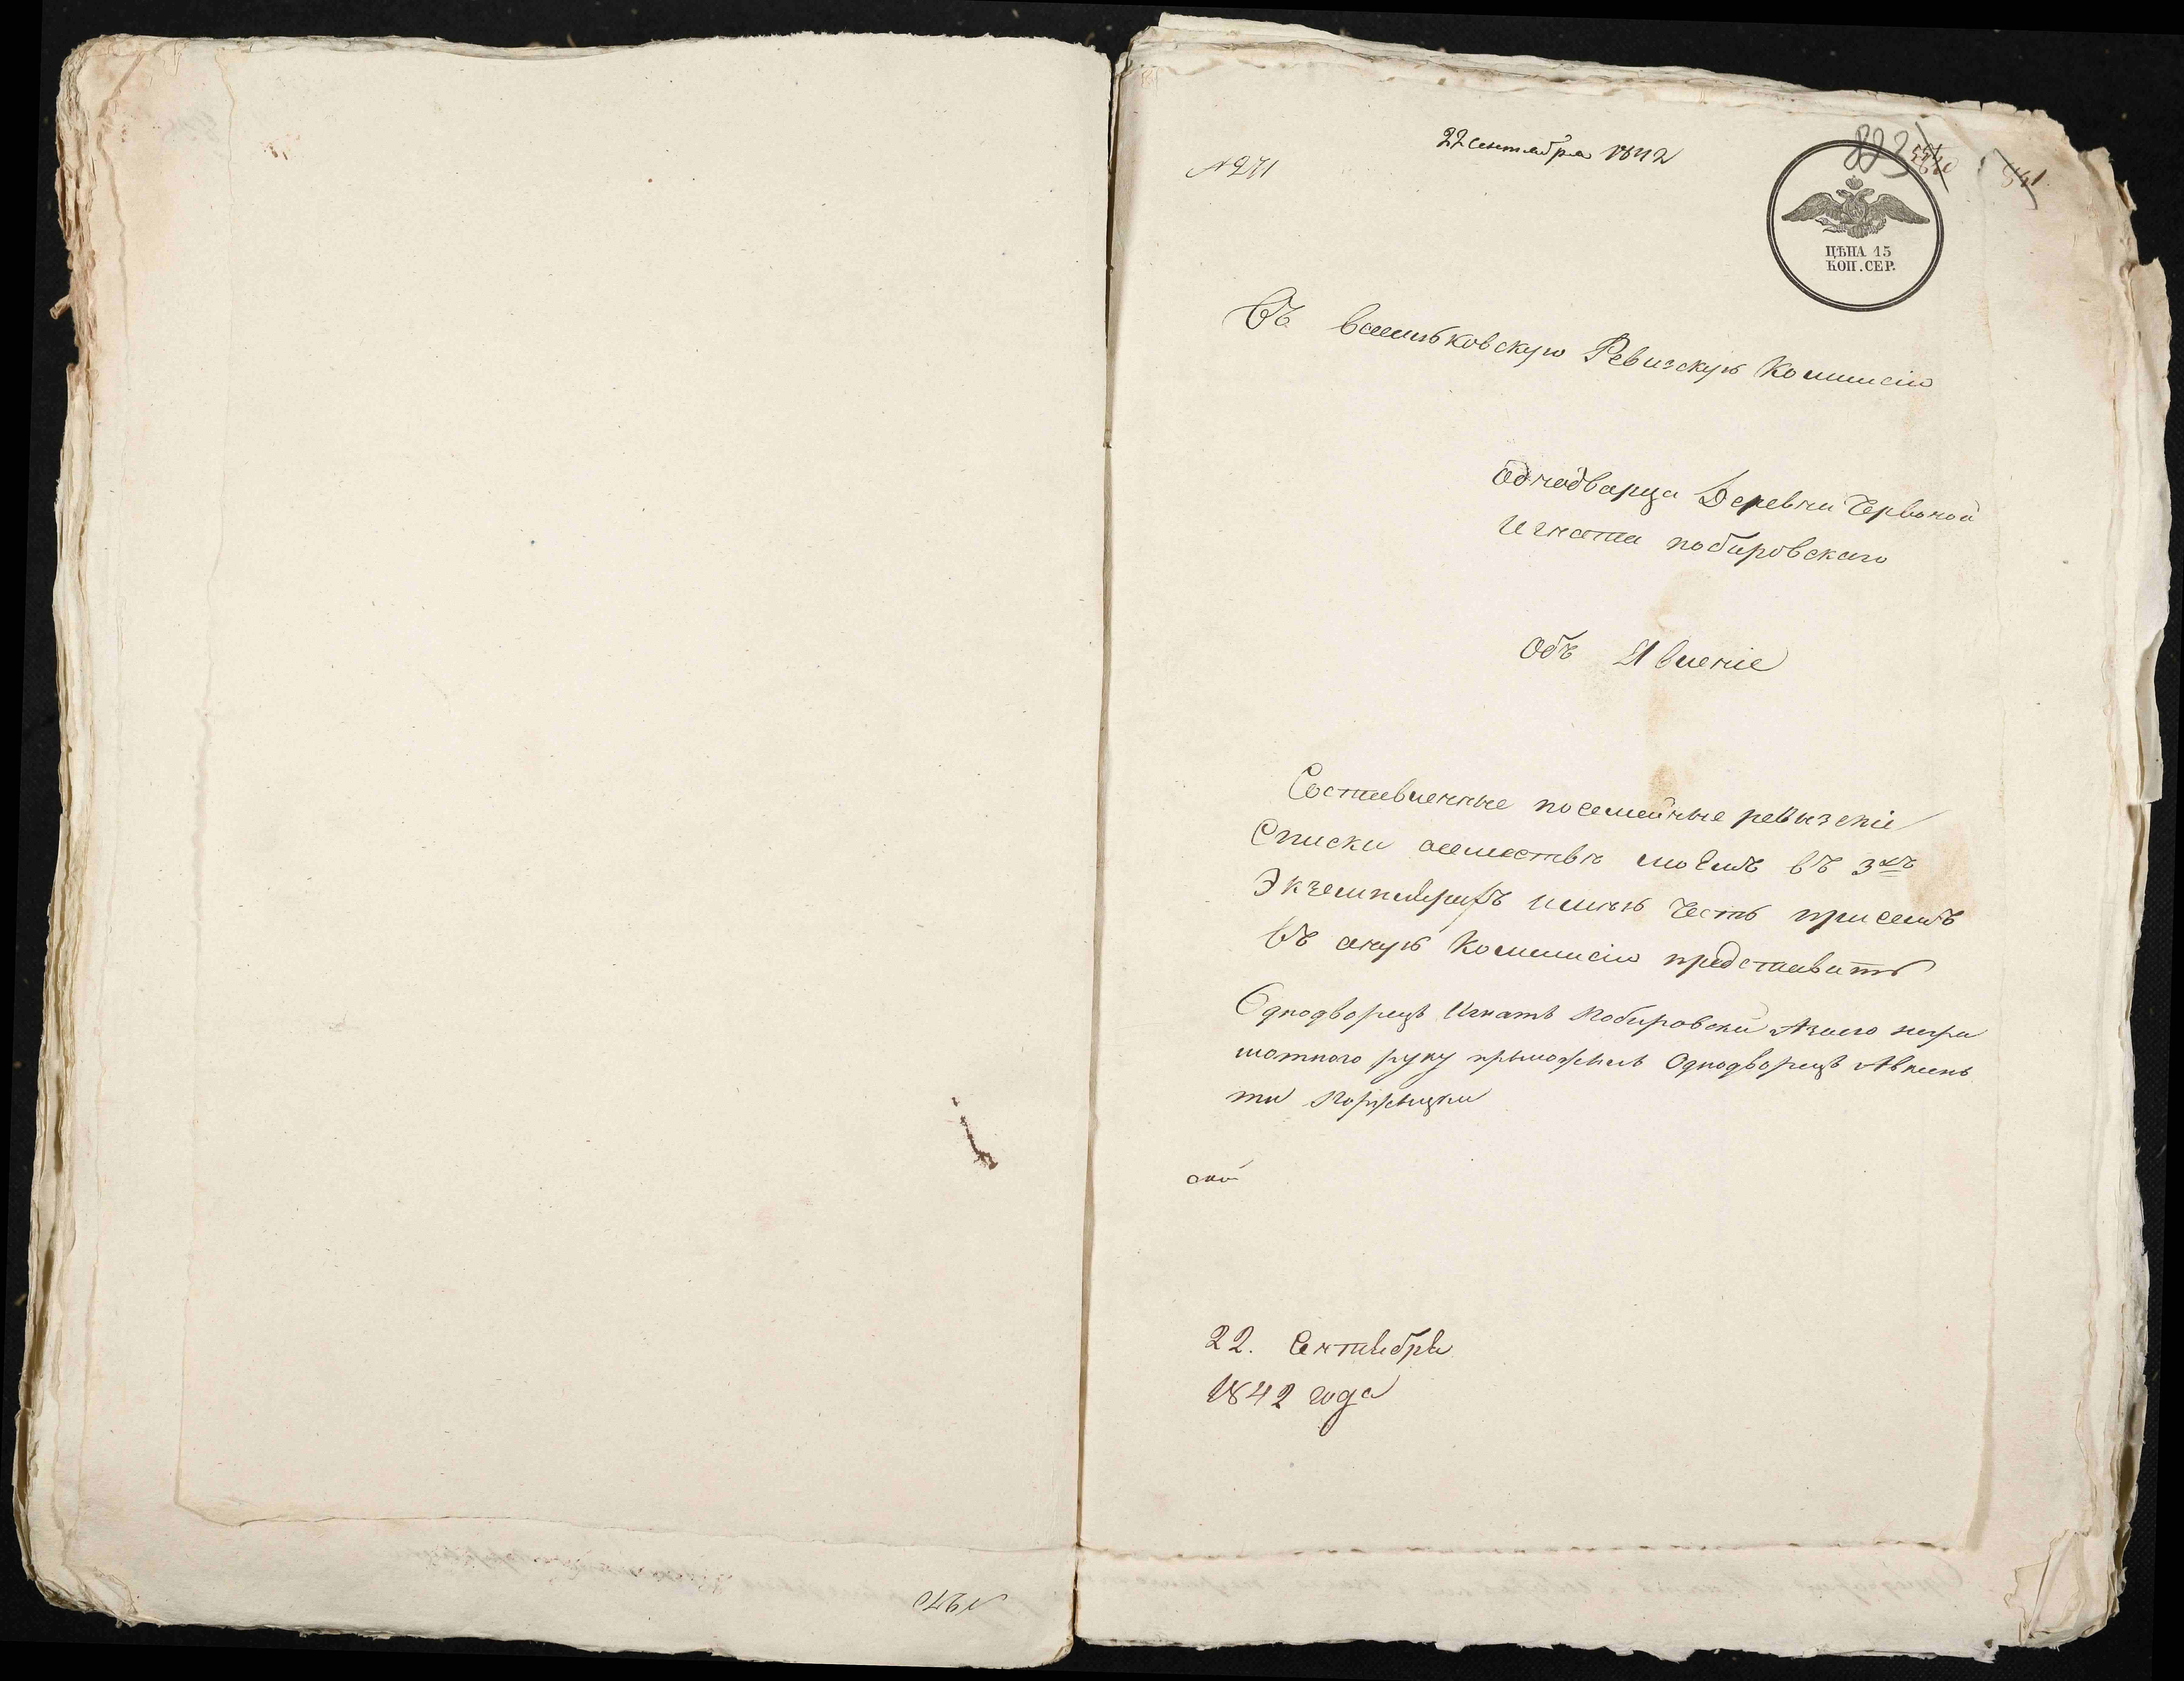 № 271
22 сентября 1842
823
841
ЦѢНА 15
КОП. СЕР.
Въ васильковскую Ревизскую Коммисію
однодворца Деревни Червоной
Игната побировскаго
Объ Явленіе
Составленные посемейные ревизскіе
Списки семейству моему въ 3хъ
Экземплярахъ имею честь присемъ
въ оную Коммисію представить
Однодворецъ Игнатъ Побировски Азаего негра
мотного руку прыложылъ Однодворецъ
22. Сентября
1842 года
№ 270